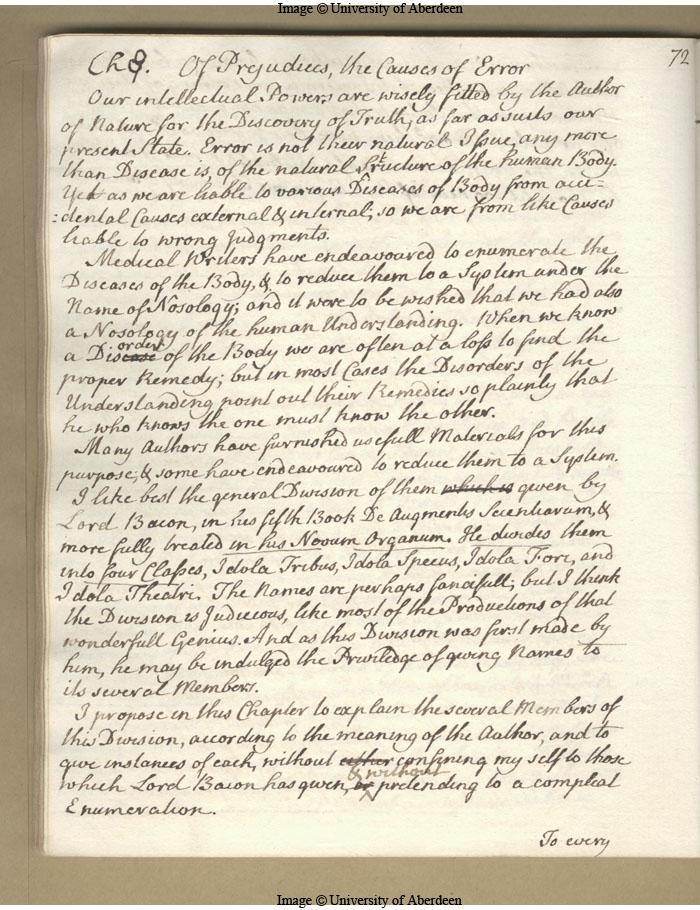 Image © University of Aberdeen
72
Ch 8. Of Prejudices, the Causes of Error
Our intellectual Powers are wisely fitted by the Author
of Nature for the Discovery of Truth, as far as suits our
present State. Error is not their natural Issue, any more
than Disease is, of the natural Structure of the human Body.
Yet as we are liable to various Diseases of Body from acci=
=dental Causes external & internal; so we are from like Causes
liable to wrong Judgments.
Medical Writers have endeavoured to enumerate the
Diseases of the Body, & to reduce them to a System under the
Name of Nosology; and it were to be wished that we had also
a Nosology of the human Understanding. When we know
a Disease order of the Body we are often at a loss to find the
proper Remedy; but in most Cases the Disorders of the
Understanding point out their Remedies so plainly that
he who knows the one must know the other.
Many Authors have furnished usefull Materials for this
purpose, & some have endeavoured to reduce them to a System.
I like best the general Division of them which is given by
Lord Bacon, in his fifth Book De Augmentis Scientiarum, &
more fully treated in his Novum Organum. He divides them
into four Classes, Idola Tribus, Idola Specus, Idola Fori, and
Idola Theatri. The Names are perhaps fancifull; but I think
the Division is Judicious, like most of the Productions of that
wonderfull Genius. And as this Division was first made by
him, he may be indulged the Priviledge of giving Names to
its several Members.
I propose in this Chapter to explain the several Members of
this Division, according to the meaning of the Author, and to
give instances of each, without either confining my self to those
which Lord Bacon has given, or & without pretending to a compleat
Enumeration.
To every
Image © University of Aberdeen